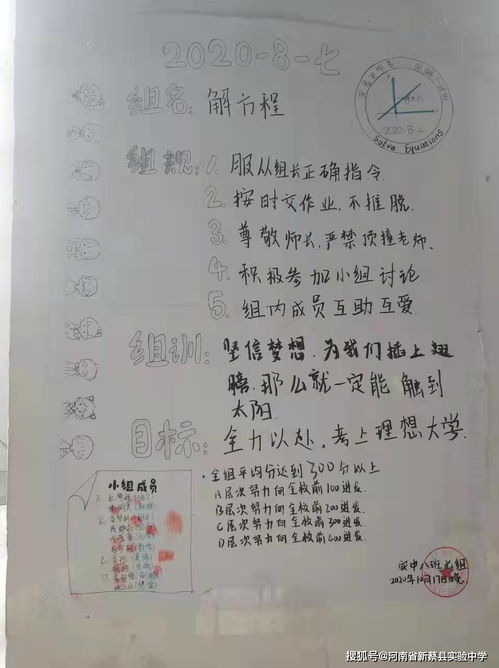 2020-8-七
组名: 解方程
2020-8-七
Solve Equations
组规: 1. 服从组长正确指令.
2. 按时交作业,不推脱.
3. 尊敬师长,严禁顶撞老师.
4. 积极参加小组讨论
5. 组内成员互助互爱
组训: 坚信梦想,为我们插上翅
膀.那么就一定能触到
太阳
目标: 全力以赴,考上理想大学.
·全组平均分达到300分以上
A层次努力向全校前100进发.
B层次努力向全校前200进发.
C层次努力向全校前300进发.
D层次努力向全校前400进发.
小组成员
A.
B.
C.
D.
实中八班七组
2020年10月17日晚
搜狐号@河南省新蔡县实验中学